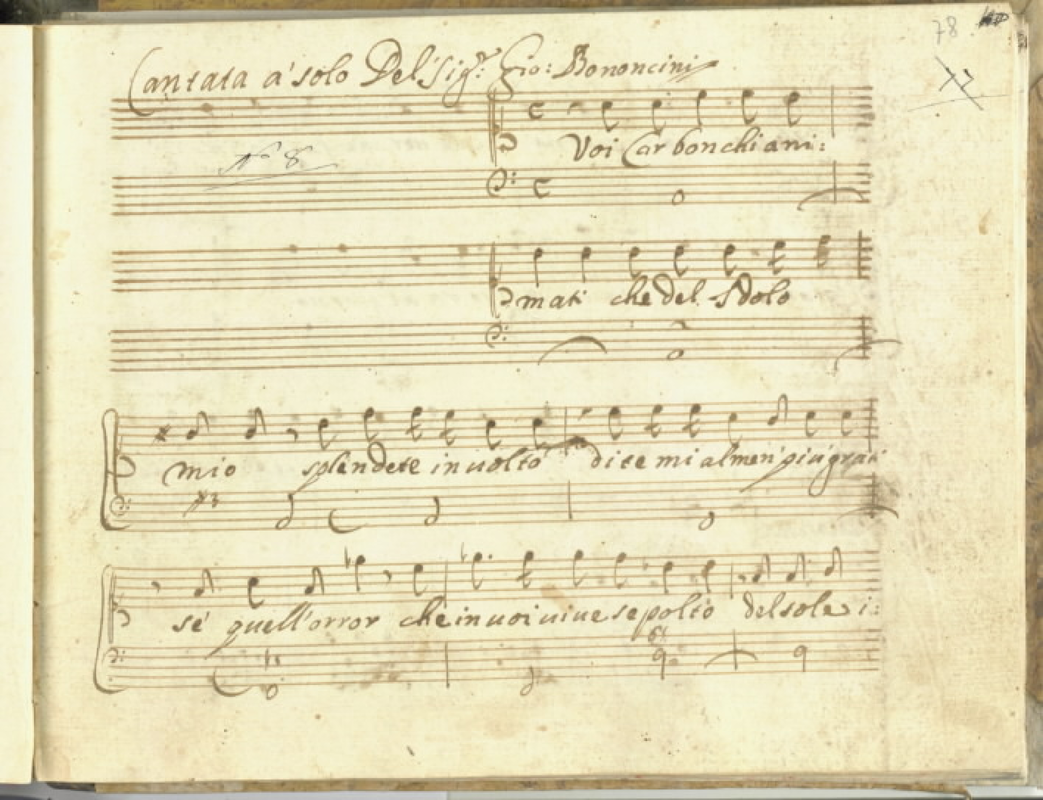 78
77
Cantata a' solo Del Sig.r Gio: Bononcini
Voi Carbonchi ani:
No 8
mati che del Idolo
mio splendete in volto dite mi almen' più grati
se' quell'orror che in voi vive sepolto del sole i: